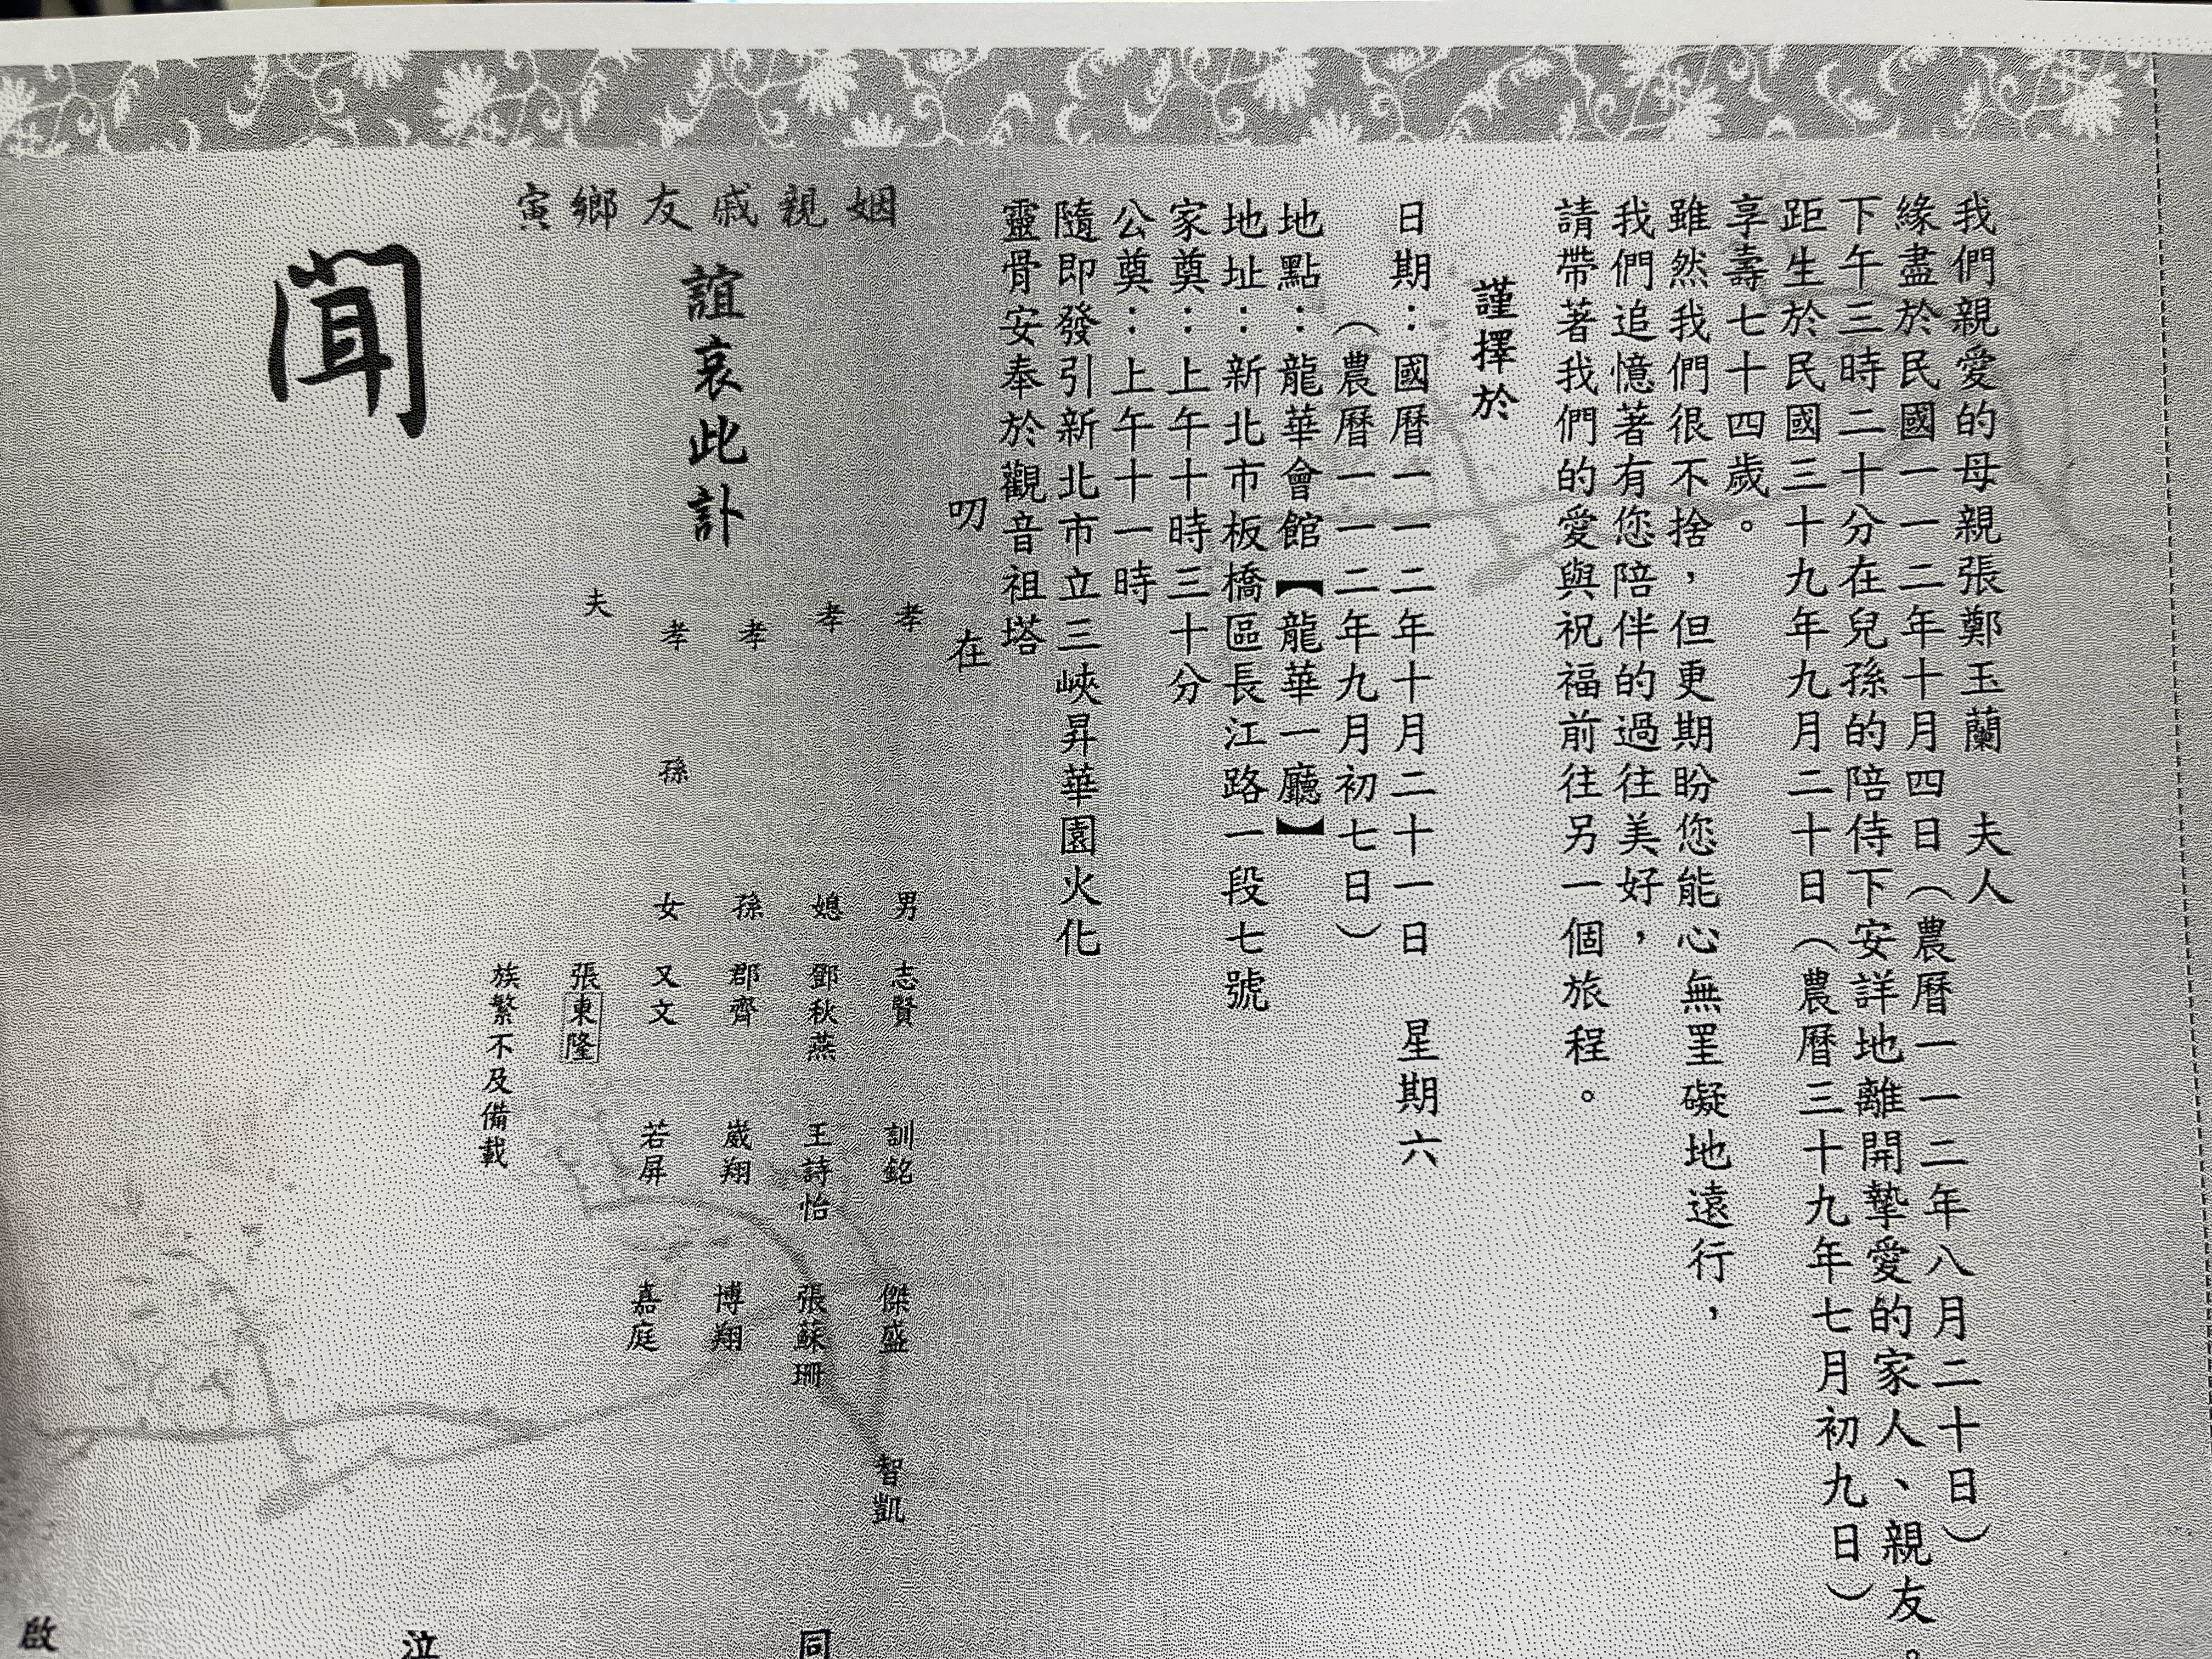 我們親愛的母親張鄭玉蘭　夫人
緣盡於民國一一二年十月四日（農曆一一二年八月二十日）
下午三時二十分在兒孫的陪侍下安詳地離開摯愛的家人、親友。
距生於民國三十九年九月二十日（農曆三十九年七月初九日）
享壽七十四歲。
雖然我們很不捨，但更期盼您能心無罣礙地遠行，
我們追憶著有您陪伴的過往美好，
請帶著我們的愛與祝福前往另一個旅程。
謹擇於
日期：國曆一一二年十月二十一日　星期六
（農曆一一二年九月初七日）
地點：龍華會館【龍華一廳】
地址：新北市板橋區長江路一段七號
家奠：上午十時三十分
公奠：上午十一時
隨即發引新北市立三峽昇華園火化
靈骨安奉於觀音祖塔
叨　在
姻親戚友鄉寅
誼哀此訃
聞
孝　男　志賢　訓銘　傑盛　智凱
孝　媳　鄧秋燕　王詩怡　張蘇珊
孝　孫　郡齊　崴翔　博翔
孝　孫　女　又文　若屏　嘉庭
夫　張東隆
族繁不及備載
同　泣　啟